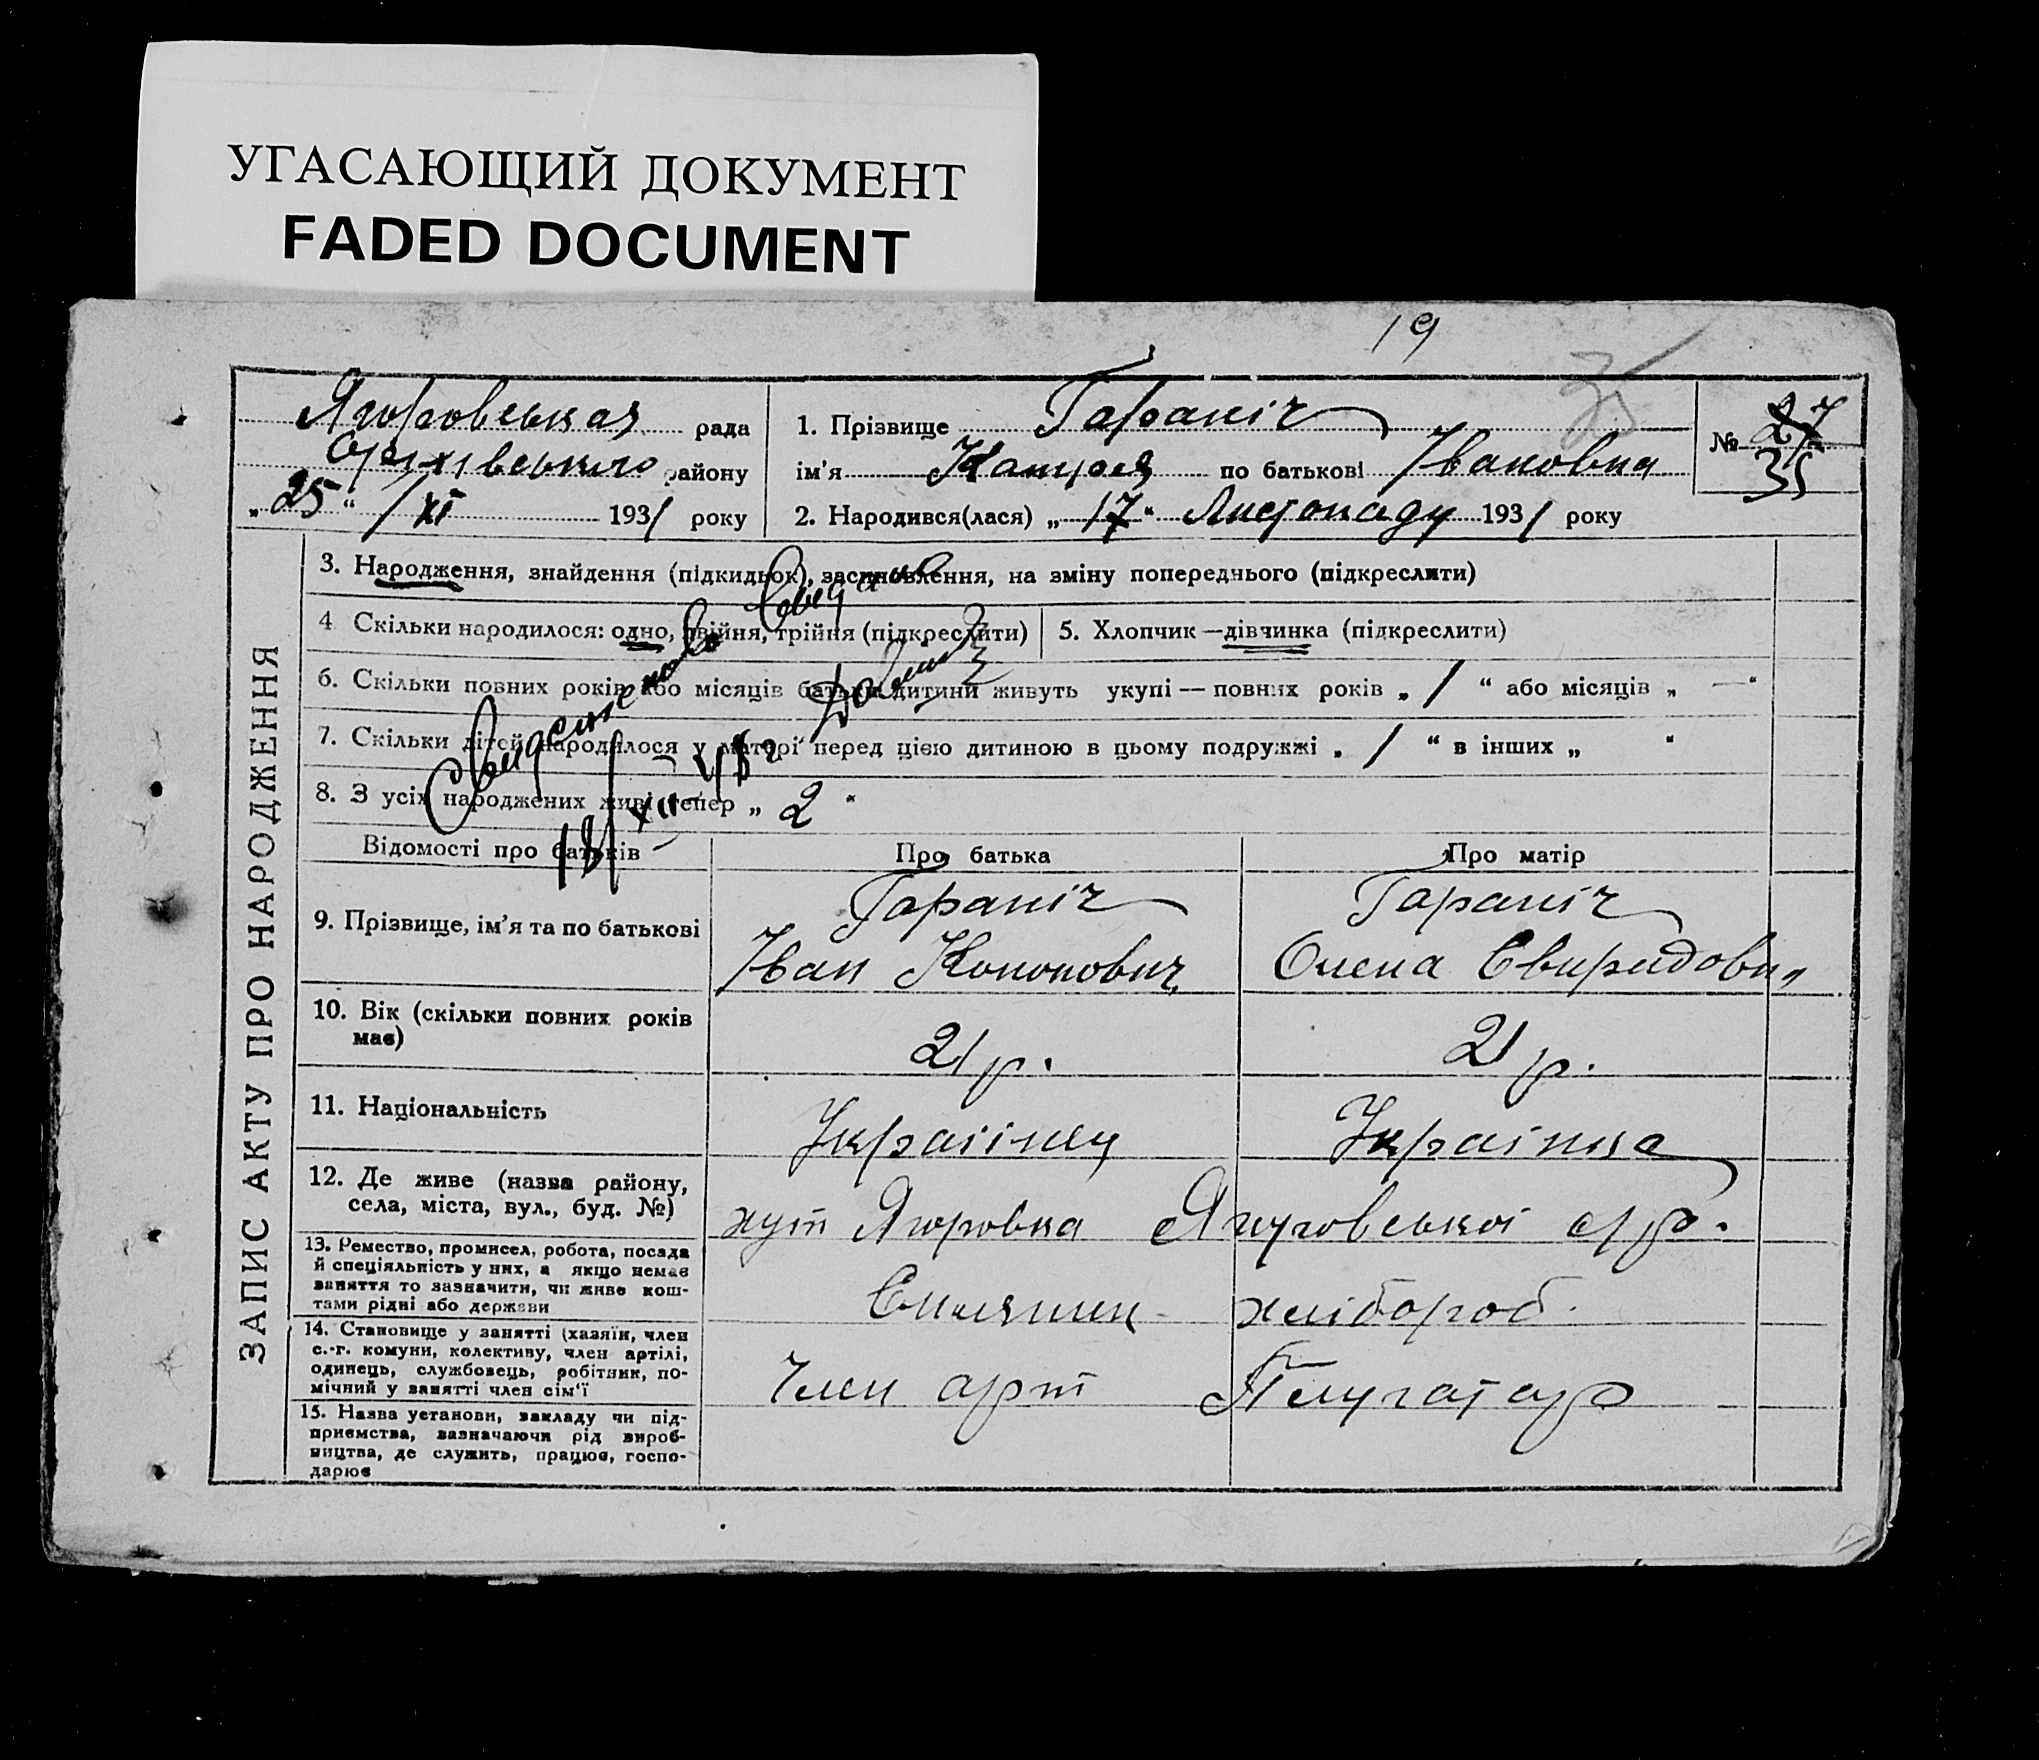 УГАСАЮЩИЙ ДОКУМЕНТ
FADED DOCUMENT
19
35
рада
району
„ 25 “ / XI 1931 року
1. Прізвище Гараніч
ім'я по батькові Івановна
2. Народився(лася) „ 17 “ Листопаду 1931 року
№ 27
35
ЗАПИС АКТУ ПРО НАРОДЖЕННЯ
3. Народження, знайдення (підкидьок), засиновлення, на зміну попереднього (підкреслити)
4 Скільки народилося: одно, двійня, трійня (підкреслити)
5. Хлопчик — дівчинка (підкреслити)
6. Скільки повних років або місяців батьки дитини живуть укупі — повних років „ 1 “ або місяців „ — “
7. Скільки дітей народилося у матері перед цією дитиною в цьому подружжі „ 1 “ в інших „ “
8. З усіх народжених живі тепер „ 2 “
Відомості про батьків
Про батька
Про матір
9. Прізвище, ім'я та по батькові
Гараніч
Іван Кононович
Гараніч
Олена Свиридовн
10. Вік (скільки повних років
має)
21 р.
21 р.
11. Національність
Українец
Українка
12. Де живе (назва району,
села, міста, вул., буд. №)
хут
13. Ремество, промисел, робота, посада
й спеціяльність у них, а якщо немає
заняття то зазначити, чи живе кош-
тами рідні або держави
хлібороб.
14. Становище у занятті (хазяїн, член
с.-г. комуни, колективу, член артілі,
одинець, службовець, робітник, по-
мічний у занятті член сім'ї
Член арт
15. Назва установи, закладу чи під-
приємства, зазначаючи рід вироб-
ництва, де служить, працює, госпо-
дарює